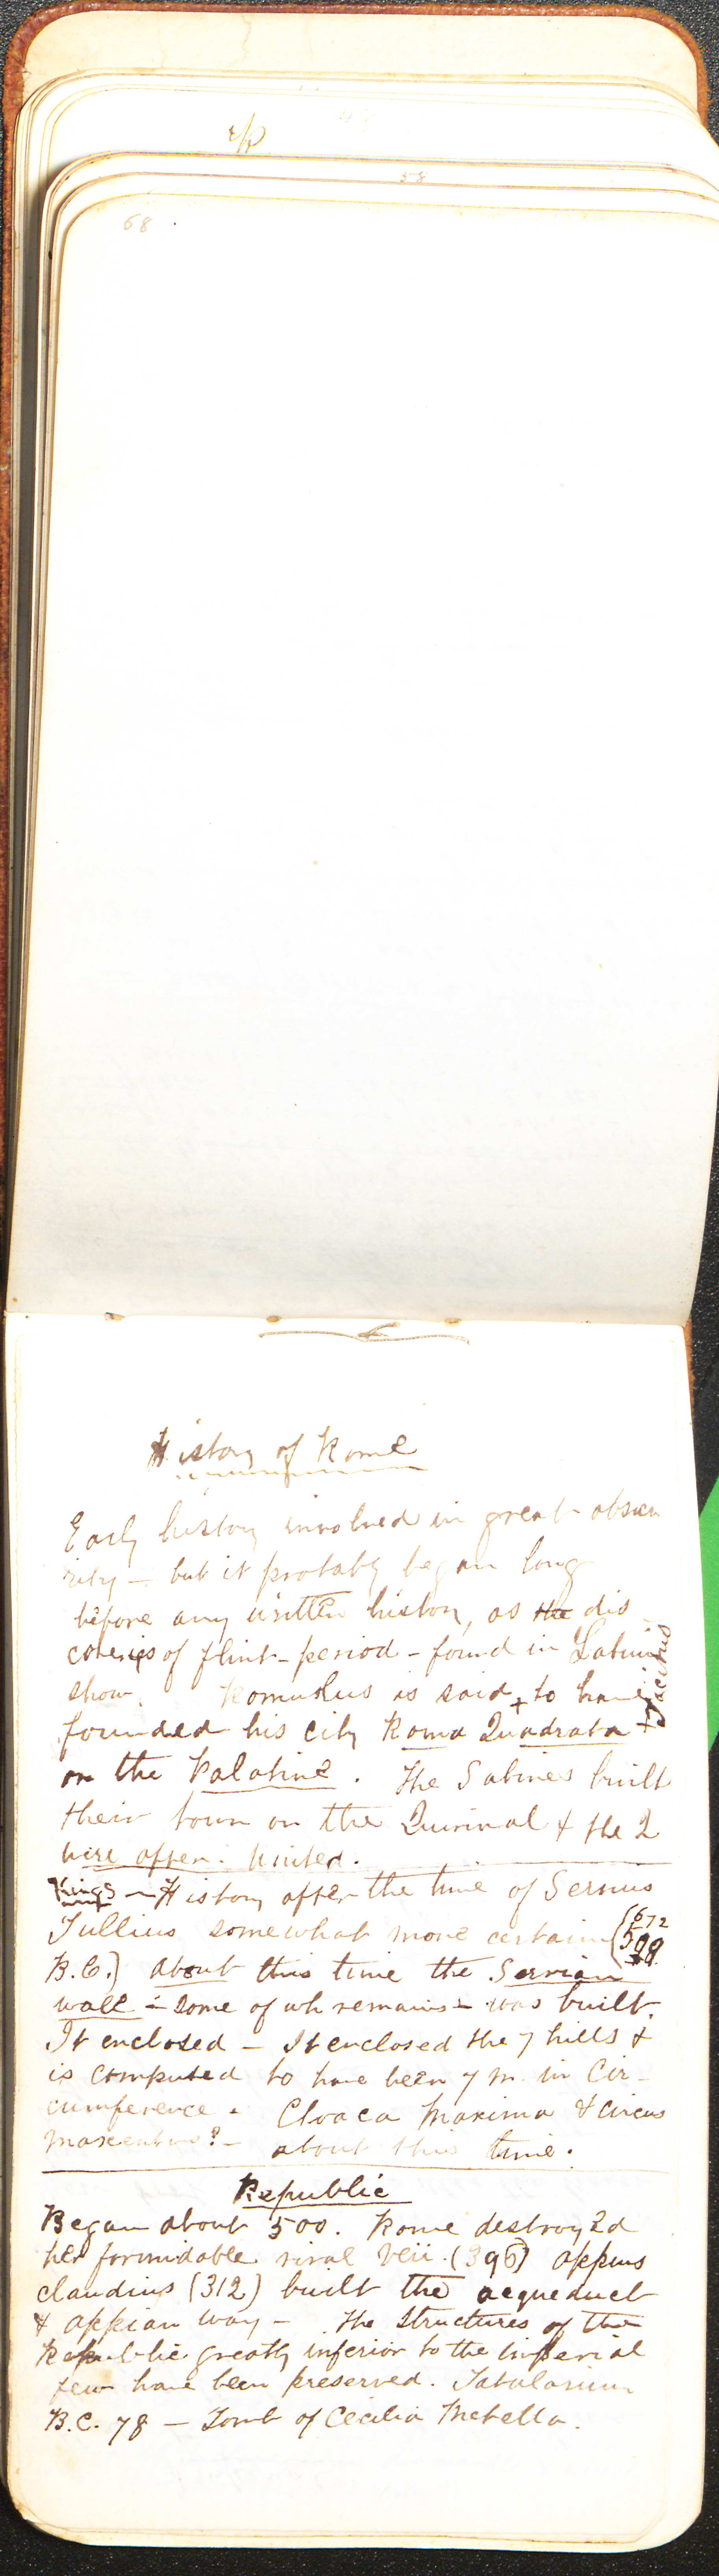 58
68
History of Rome
Early history involved in great obscu
rity — but it probably began long
before any written history, as the dis-
coveries of flint-period - found in Latium
show. Romulus is said + to have
founded his city Roma Quadrata + Tacitus
on the Palatine. The Sabines built
their town on the Quirinal & the 2
were after. united.
Kings — History after the time of Servius
Tullius somewhat more certain (672
B.C.) about this time the Servian
wall - some of wh remains - was built.
It enclosed - It enclosed the 7 hills &
is computed to have been 7 m. in Cir-
cumference. Cloaca Maxima & Circus
Maxentius? - about this time.
Republic
Began about 500. Rome destroy2d
her formidable rival Veii. (396) Appius
Claudius (312) built the acqueduct
& Appian Way - The structures of the
Republic greatly inferior to the imperial
few have been preserved. Tabularium
B.C. 78 - Tomb of Cecilia Metella.